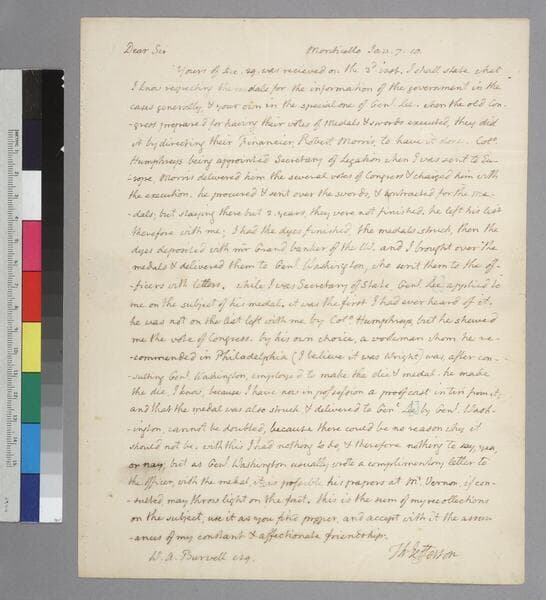 Dear Sir Monticello Jan. 7. 10.
Yours of Dec. 29. was recieved on the 2d inst. I shall state what
I know respecting the medals for the information of the government in the
cases generally, & your own in the special one of Genl. Lee. when the old Con-
-gress prepared for having their votes of Medals & swords executed, they did
it by directing their Financier, Robert Morris, to have it done. Colo.
Humphreys being appointed Secretary of legation when I was sent to Eu-
-rope, Morris delivered him the several votes of Congress & charged him with
the execution. he procured & sent over the swords, & contracted for the me-
-dals; but staying there but 2. years, they were not finished. he left his list
therefore with me; I had the dyes finished, the medals struck, then the
dyes deposited with mr Grand banker of the US. and I brought over the
medals & delivered them to Genl. Washington, who sent them to the of-
-ficers with letters. while I was Secretary of State, Genl. Lee applied to
me on the subject of his medal. it was the first I had ever heard of it.
he was not on the list left with me by Colo. Humphreys, but he shewed
me the vote of Congress. by his own choice, a workman whom he re-
-commended in Philadelphia (I believe it was Wright) was, after con-
-sulting Genl. Washington, employed to make the die & medal. he made
the die, I know, because I have now in possession a proof cast in tin from it;
and that the medal was also struck & delivered to Genl. Lee by Genl. Wash-
-ington, cannot be doubted, because there could be no reason why it
should not be. with this I had nothing to do, & therefore nothing to say, yea,
or nay; but as Genl. Washington usually wrote a complimentary letter to
the officer, with the medal, it is possible his papers at Mt. Vernon, if con-
-sulted, may throw light on the fact. this is the sum of my recollections
on the subject; use it as you find proper, and accept with it the assur-
-ances of my constant & affectionate friendship.
Th: Jefferson
W. A. Burwell esq.